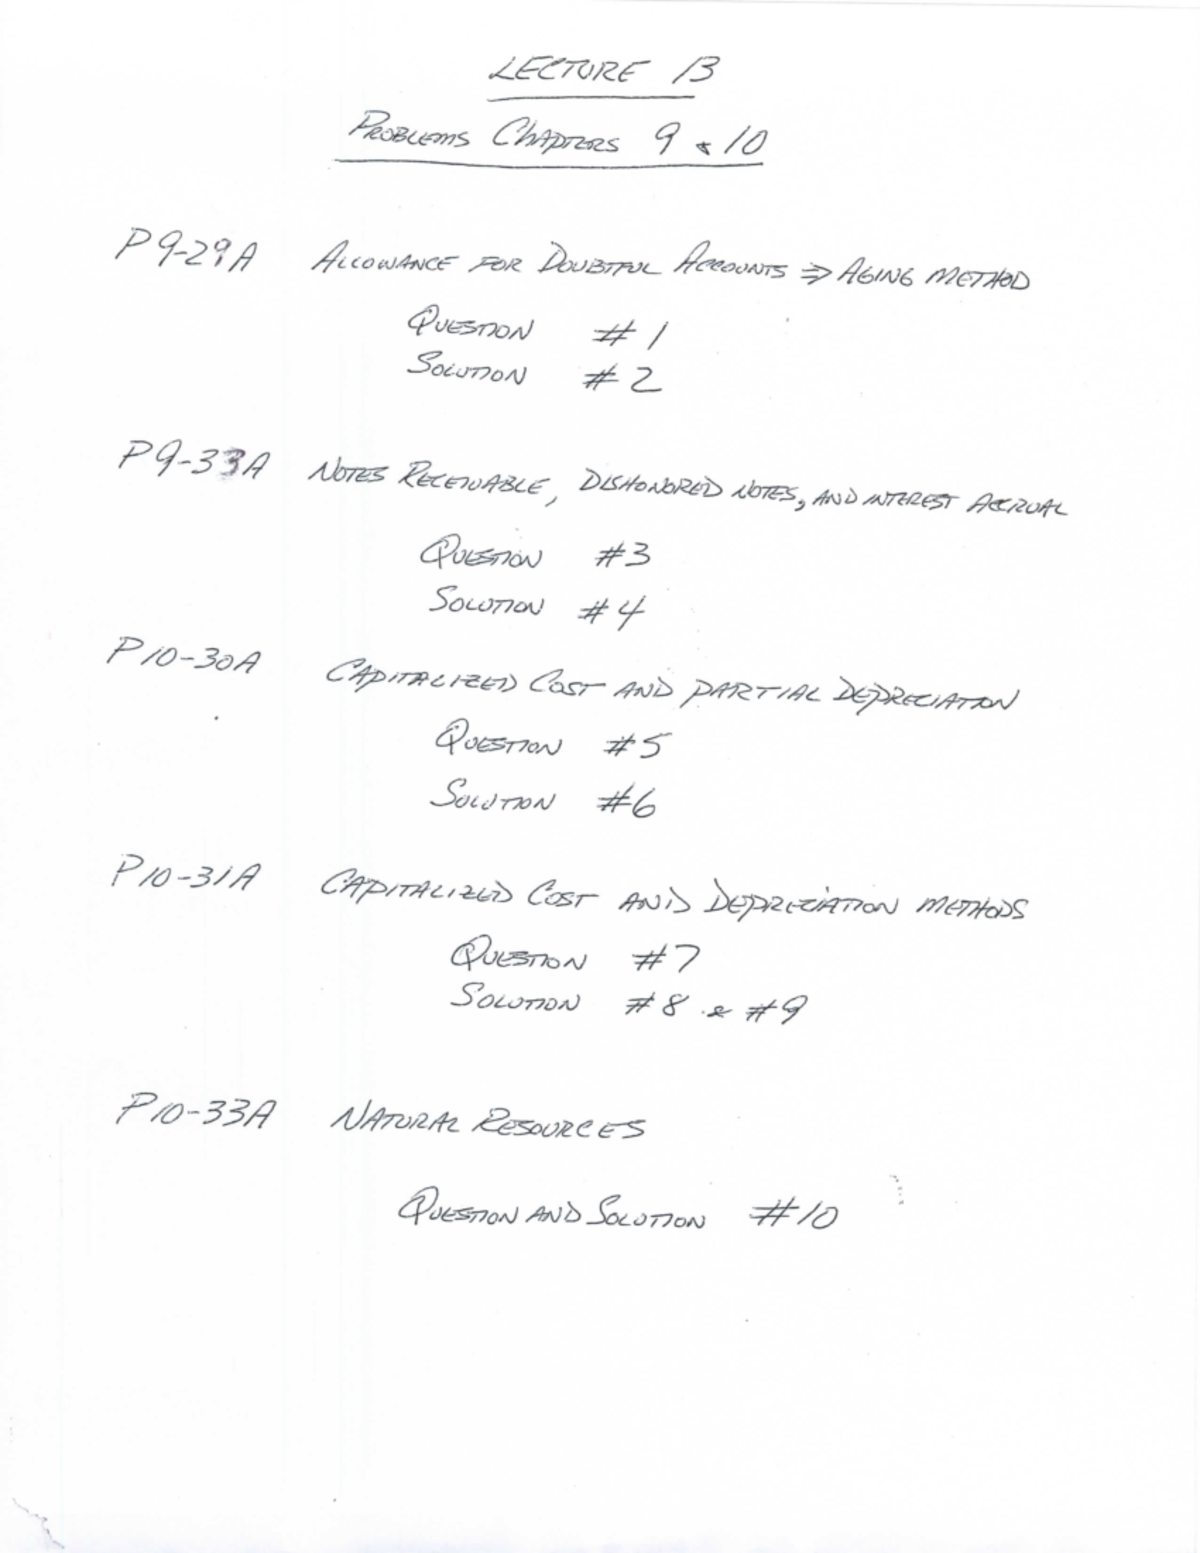 LECTURE 13
PROBLEMS CHAPTERS 9 & 10
P9-29A ALLOWANCE FOR DOUBTFUL ACCOUNTS => AGING METHOD
QUESTION #1
SOLUTION #2
P9-33A NOTES RECEIVABLE, DISHONORED NOTES, AND INTEREST ACCRUAL
QUESTION #3
SOLUTION #4
P10-30A CAPITALIZED COST AND PARTIAL DEPRECIATION
QUESTION #5
SOLUTION #6
P10-31A CAPITALIZED COST AND DEPRECIATION METHODS
QUESTION #7
SOLUTION #8 & #9
P10-33A NATURAL RESOURCES
QUESTION AND SOLUTION #10